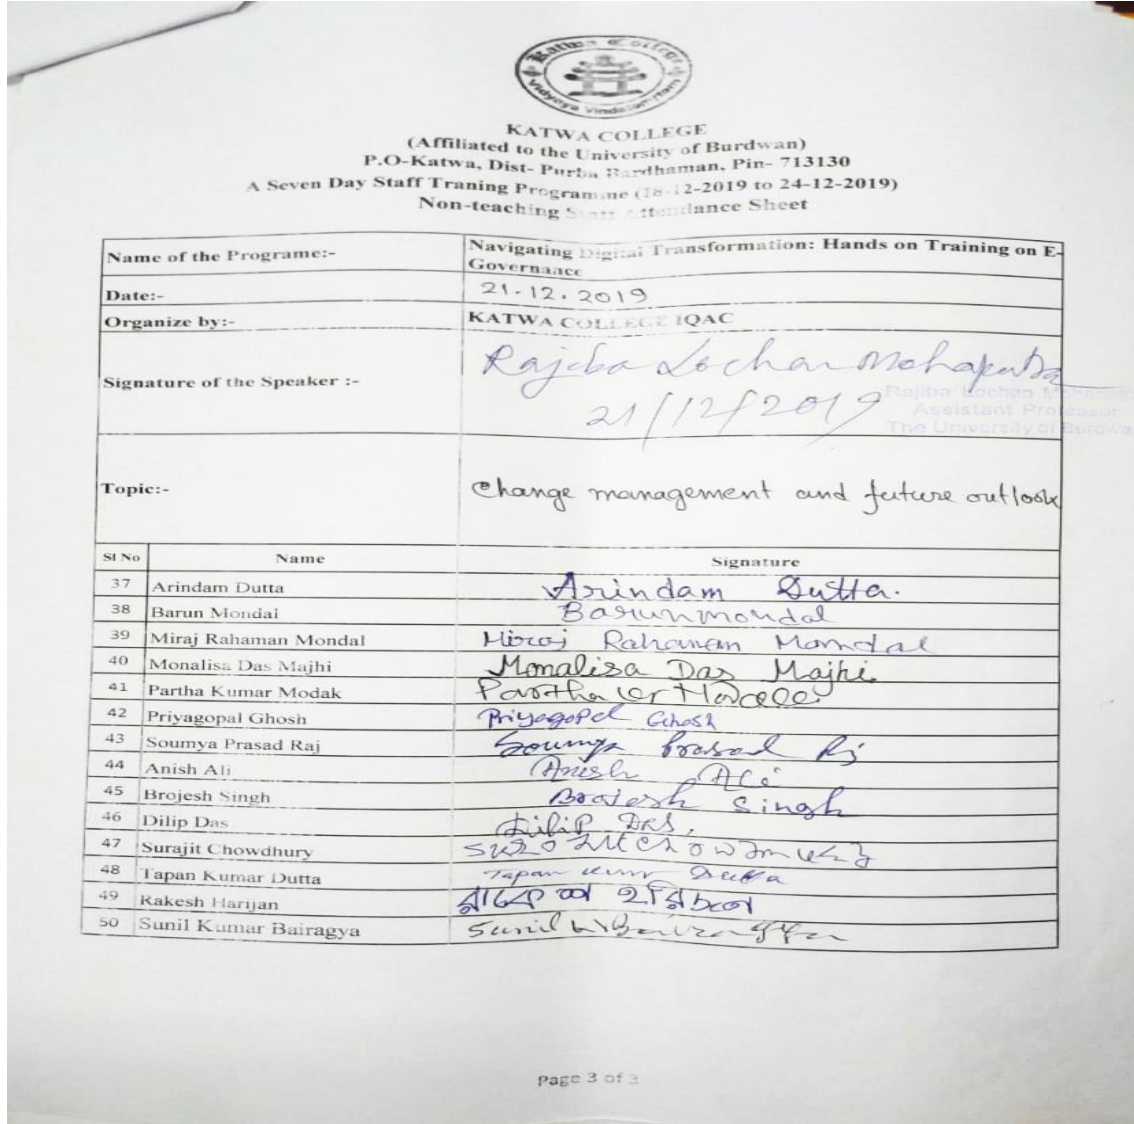 Katwa College
Vidyaya Vindatam
KATWA COLLEGE
(Affiliated to the University of Burdwan)
P.O-Katwa, Dist- Purba Bardhaman, Pin- 713130
A Seven Day Staff Traning Programme (18-12-2019 to 24-12-2019)
Non-teaching Staff Attendance Sheet
Name of the Programe:- Navigating Digital Transformation: Hands on Training on E-
Governance
Date:- 21.12.2019
Organize by:- KATWA COLLEGE IQAC
Signature of the Speaker :- Rajiba Lochan Mohapatra
21/12/2019
Rajiba Lochan
Assistant Professor
The University of Burdwan
Topic:- Change management and future outlook
Sl No Name Signature
37 Arindam Dutta Arindam Dutta.
38 Barun Mondal Barun mondal
39 Miraj Rahaman Mondal Miraj Rahaman Mondal
40 Monalisa Das Majhi Monalisa Das Majhi
41 Partha Kumar Modak Partha Kr Modak
42 Priyagopal Ghosh Priyagopal Ghosh
43 Soumya Prasad Raj Soumya Prasad Raj
44 Anish Ali Anish Ali
45 Brojesh Singh Brojesh Singh
46 Dilip Das Dilip Das,
47 Surajit Chowdhury
48 Tapan Kumar Dutta Tapan Kumar Dutta
49 Rakesh Harijan রাকেশ হরিজন
50 Sunil Kumar Bairagya Sunil Kr Bairagya
Page 3 of 3